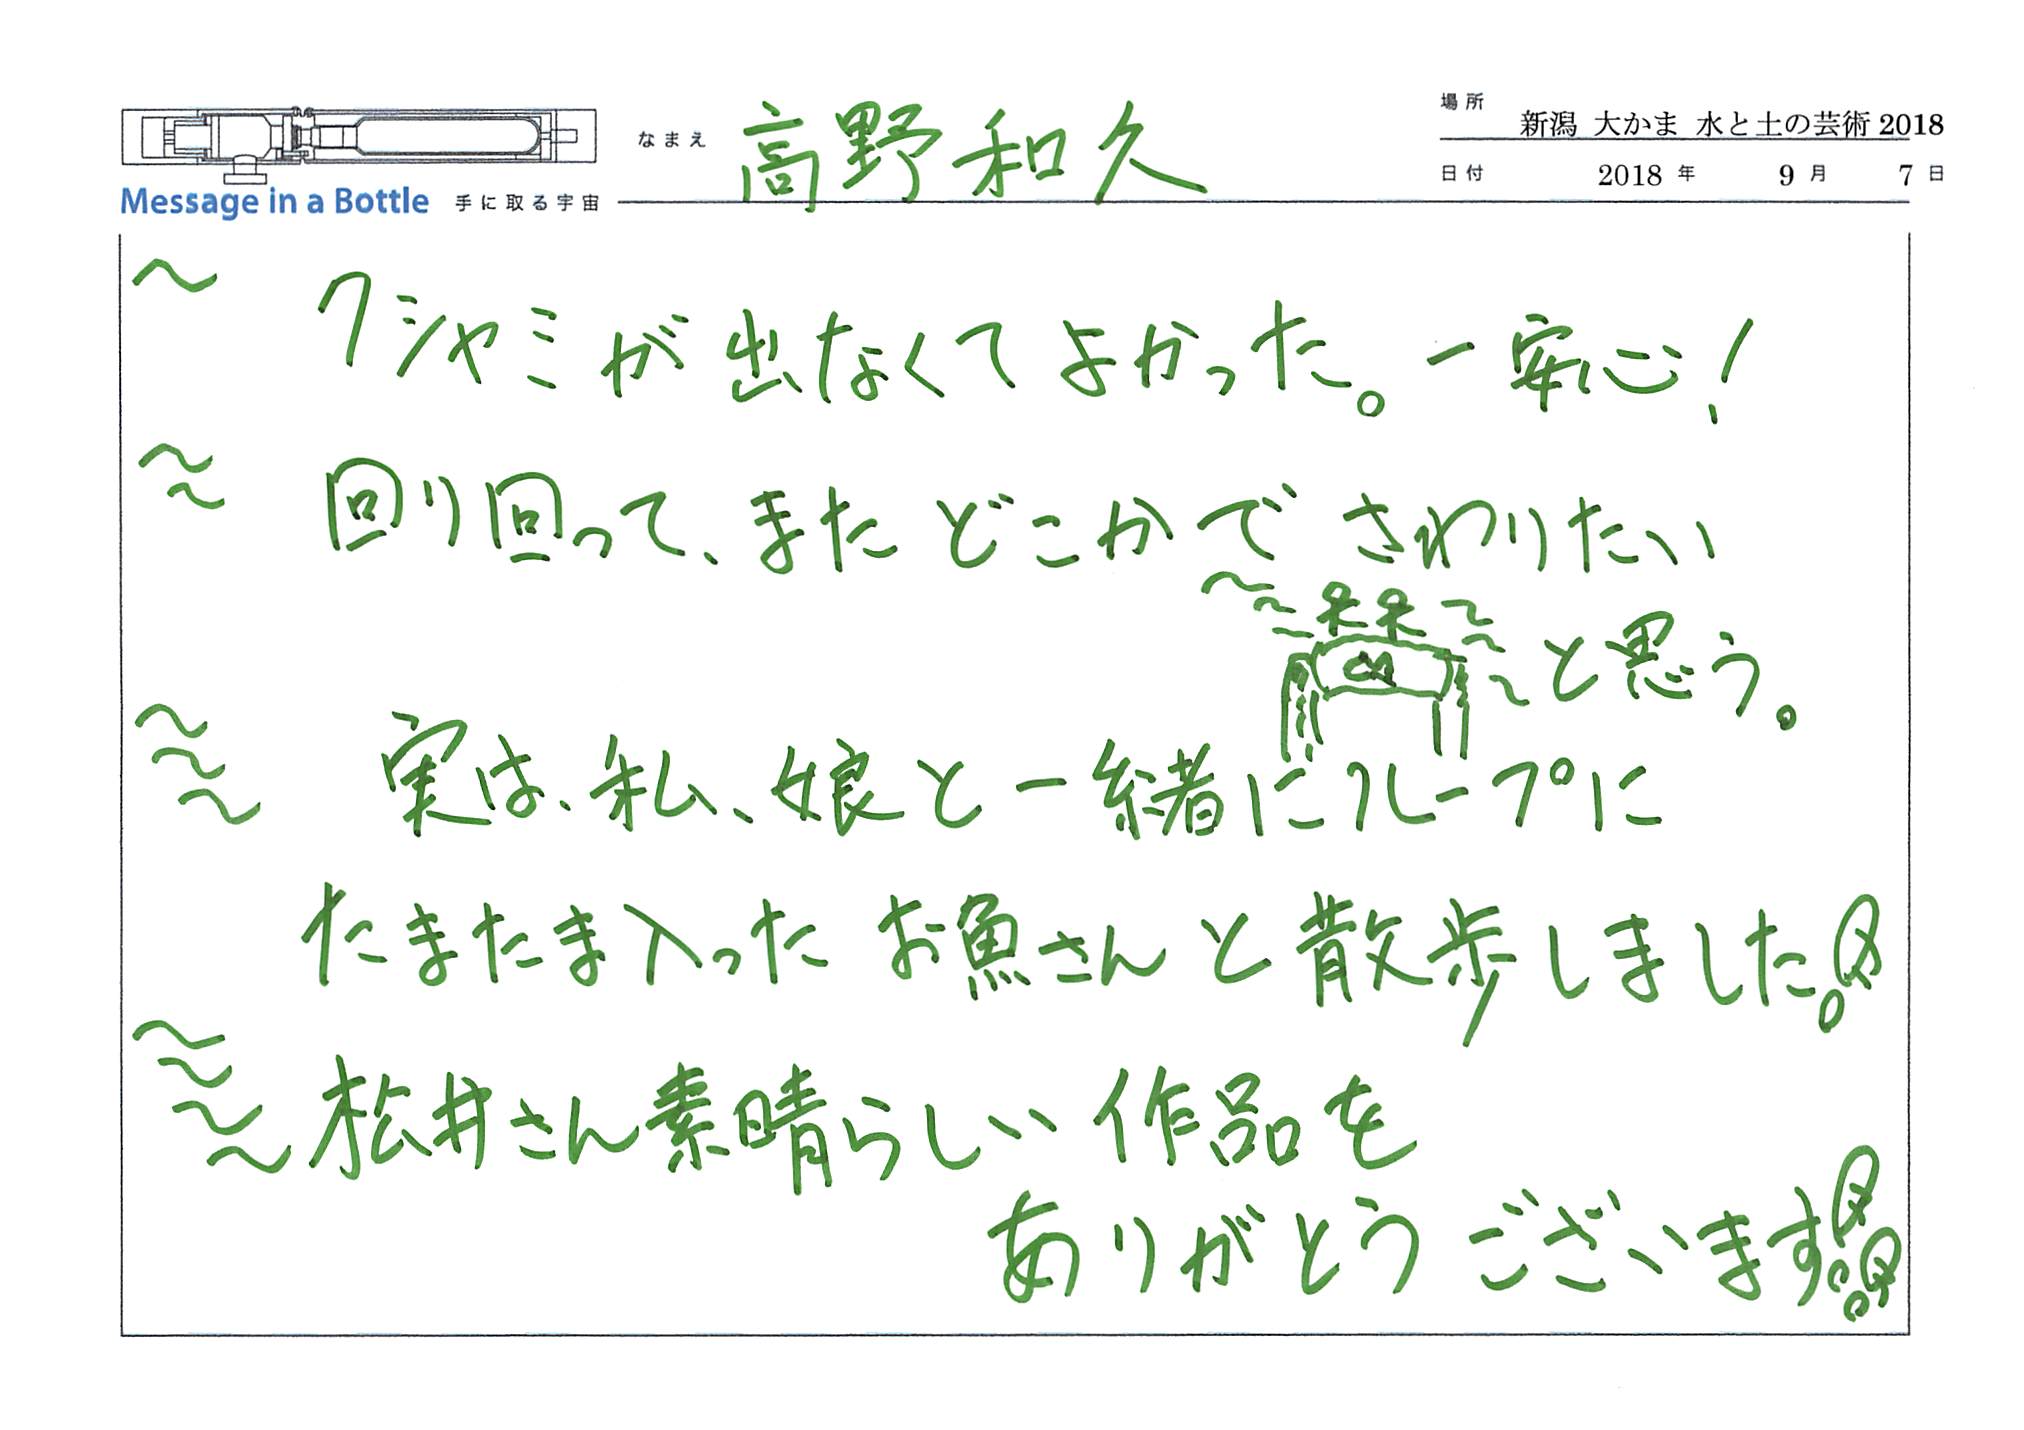 なまえ 高野和久
場所 新潟 大かま 水と土の芸術 2018
日付 2018 年 9 月 7 日
Message in a Bottle 手に取る宇宙
クシャミが出なくてよかった。一安心！
回り回って、またどこかでさわりたい
と思う。
実は、私、娘と一緒にループに
たまたま入ったお魚さんと散歩しました。
松井さん素晴らしい作品を
ありがとうございます